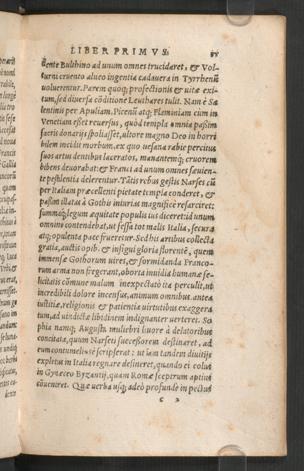 LIBER PRIMVS.
dente Bulthino ad unum omnes trucidaret, & Vol-
turni cruento alueo ingentia cadauera in Tyrrhenũ
uoluerentur. Parem quoq; profectionis & uitæ exi-
tum, sed diuersa cõditione Leuthares tulit. Nam è Sa
lentinis per Apuliam, Picenũ atq; Flaminiam cum in
Venetiam esset reuersus, quod templa omnia passim
sacris donarijs spoliasset, ultore magno Deo in horri
bilem incidit morbum, ex quo uesana rabie percitus
suos artus dentibus laceratos, manantemq; cruorem
bibens deuorabat: & Franci ad unum omnes sæuien-
te pestilentia delerentur. Tãtis rebus gestis Narses cũ
per Italiam præcellenti pietate templa conderet, &
passim
à Gothis iniurias magnificè resarciret:
summaq; legum æquitate populis ius diceret: id unum
omnium contendebat, ut fessa tot malis Italia, secura
atq; opulenta pace frueretur. Sed his artibus collecta
gratia, auctis opib. & insigni gloria florentē, quem
immensæ Gothorum uires, & formidanda Franco-
rum arma non fregerant, oborta inuidia humanæ fe-
licitatis cõmune malum inexpectatò ita perculit, ut
incredibili dolore incensus, animum omnibus antea
iustitiæ, religionis & patientiæ uirtutibus exaggera
tum, ad uindictæ libidinem indignanter uerteret. So
phia namq; Augusta muliebri liuore à delatoribus
concitata, quum Narseti successorem destinaret, ad
eum contumeliose scripserat: ut iam tandem diuitijs
expletus in Italia regnare desineret, quando ei colus
in Gynæceo Byzantij, quam Romæ sceptrum aptius
cõueniret. Quæ uerba usq; adeò profundè in pectus
c